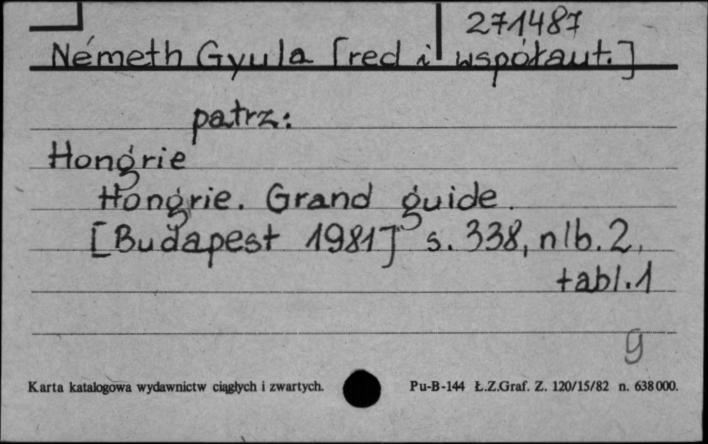 271487
Németh Gyula [red i współaut.]
patrz:
Hongrie
Hongrie. Grand guide.
[Budapest 1981] s. 338, nlb. 2,
tabl. 1
g
Karta katalogowa wydawnictw ciągłych i zwartych. Pu-B-144 Ł.Z.Graf. Z. 120/15/82 n. 638000.